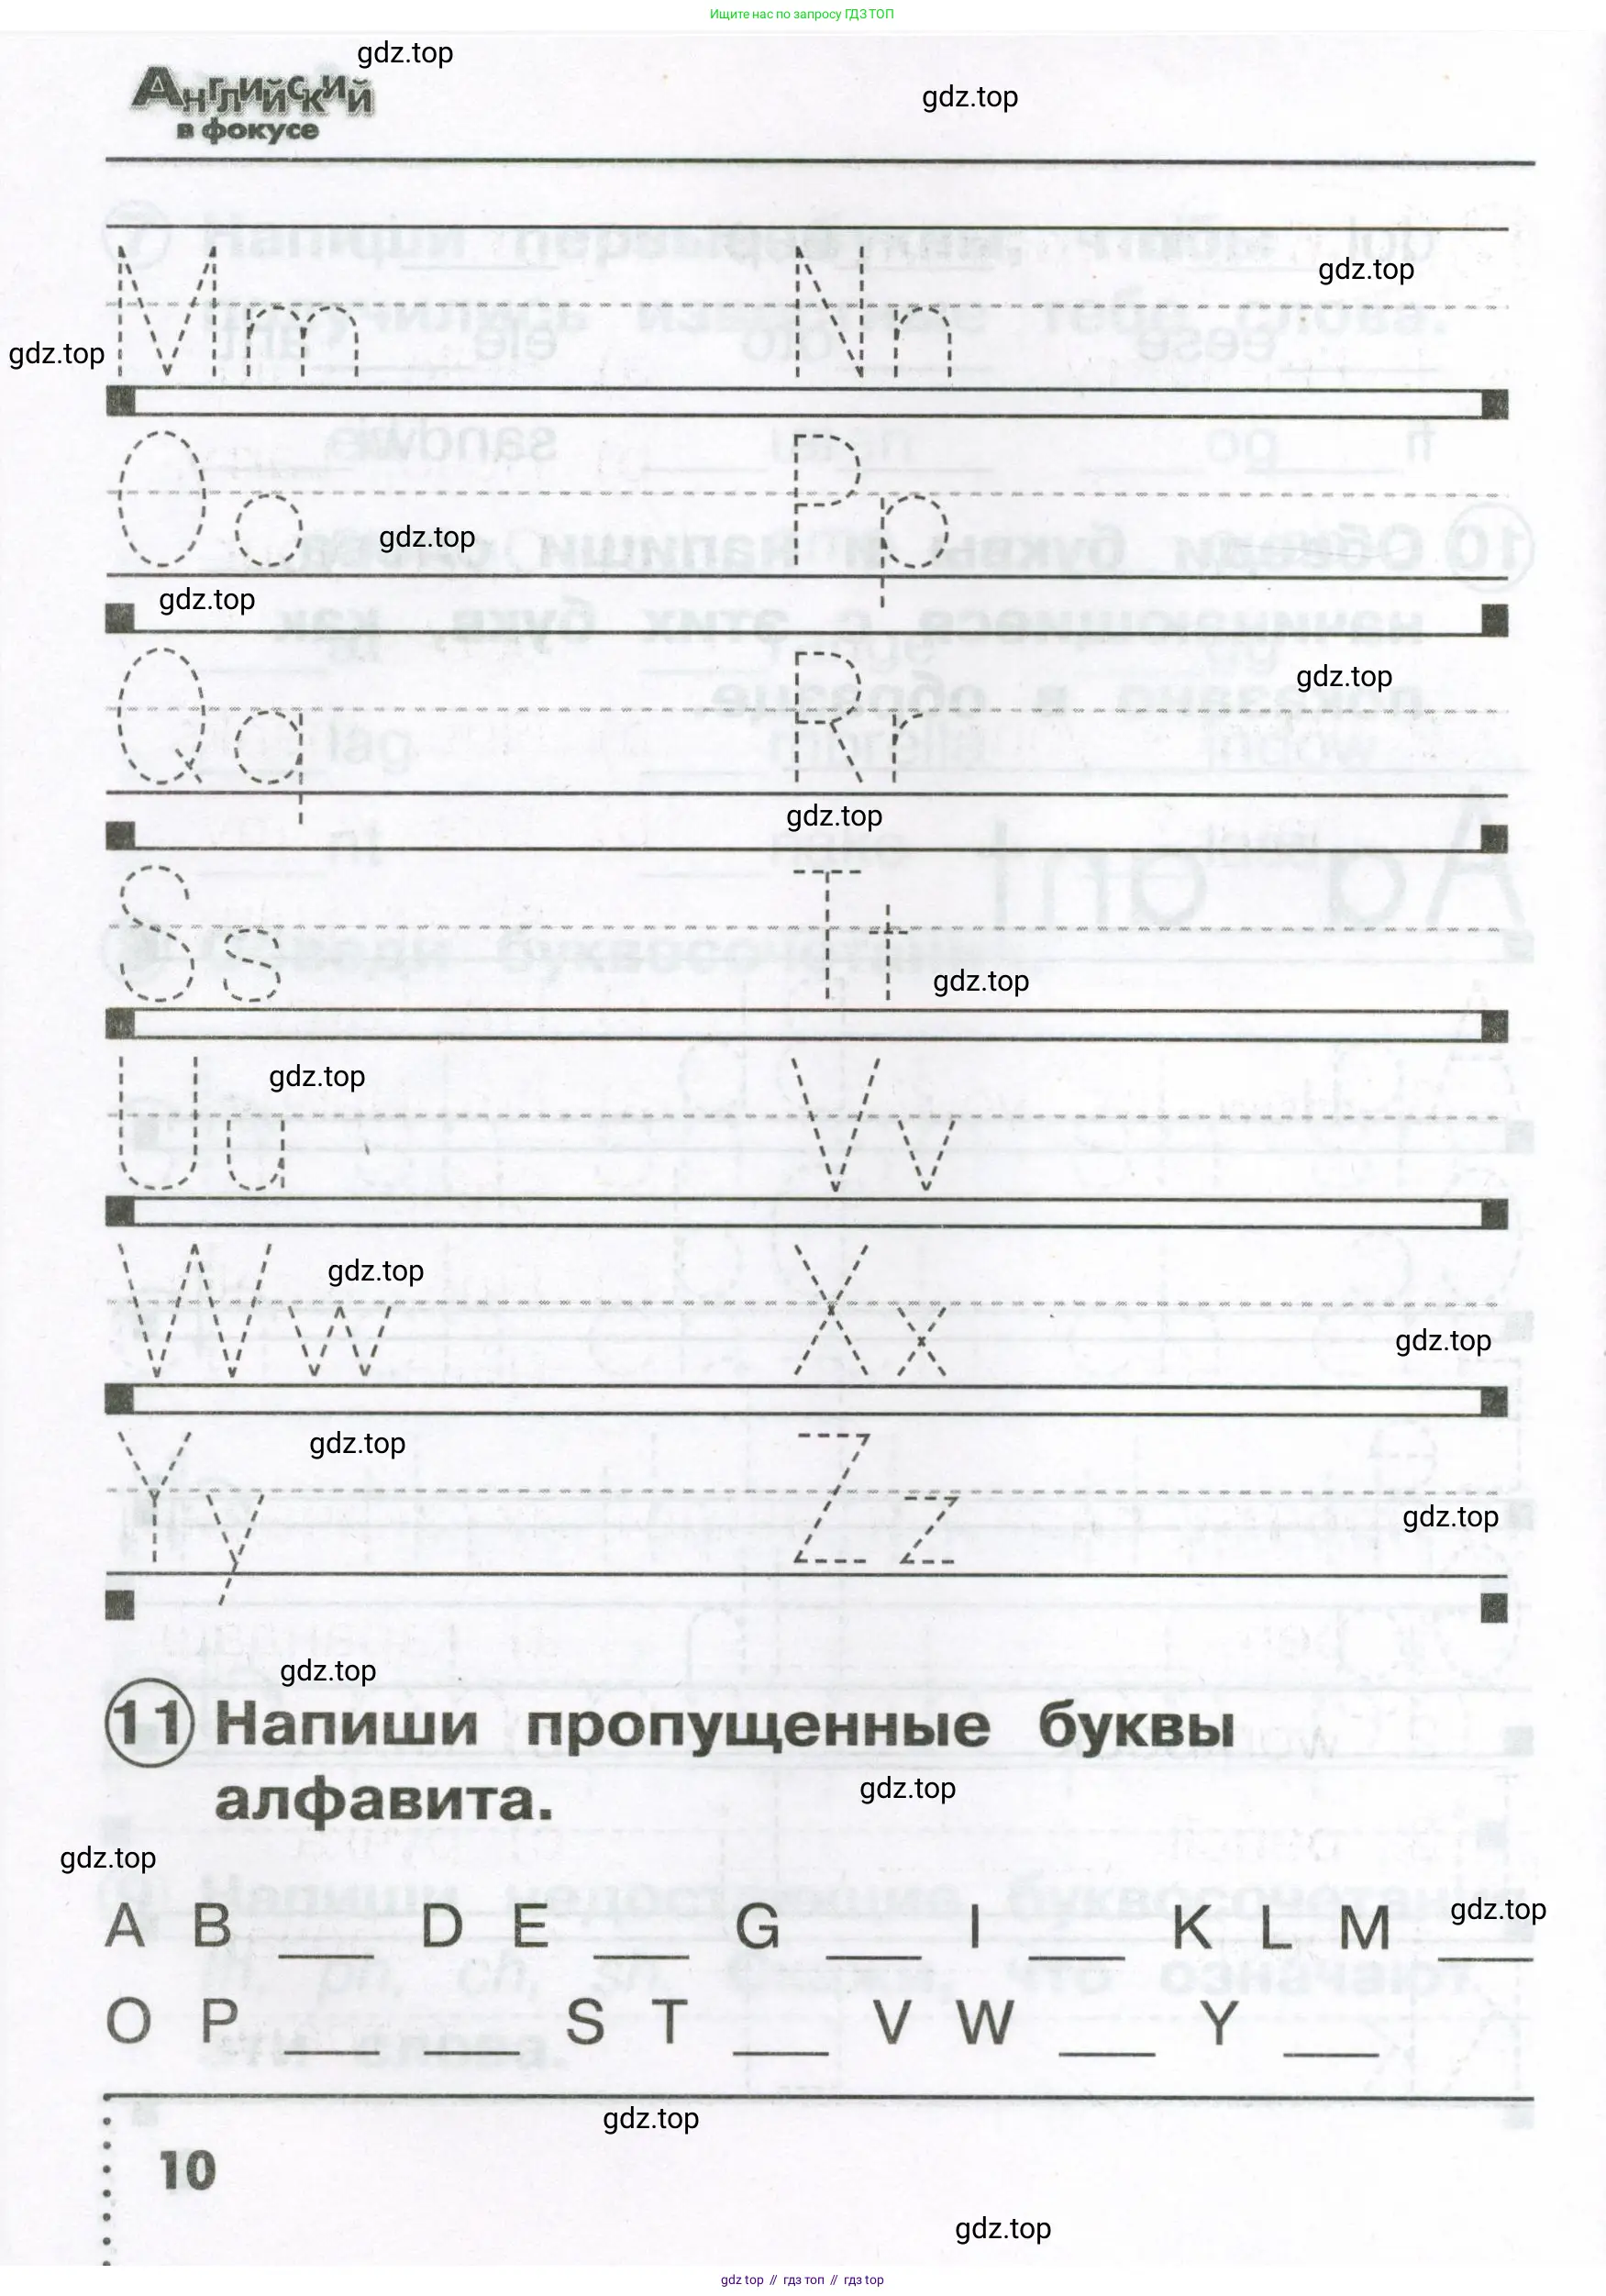 Ищите нас по запросу ГДЗ ТОП
gdz.top
Английский
в фокусе
gdz.top
Mm Nn
gdz.top
gdz.top
Oo Pp
gdz.top
gdz.top
Qq Rr
gdz.top
gdz.top
Ss Tt
gdz.top
Uu Vv
gdz.top
Ww Xx
gdz.top
gdz.top
Yy Zz
gdz.top
gdz.top
gdz.top
11 Напиши пропущенные буквы
алфавита.
gdz.top
gdz.top
A B ___ D E ___ G ___ I ___ K L M ___
gdz.top
O P ___ ___ S T ___ V W ___ Y ___
gdz.top
10
gdz.top
gdz top // гдз топ // гдз top